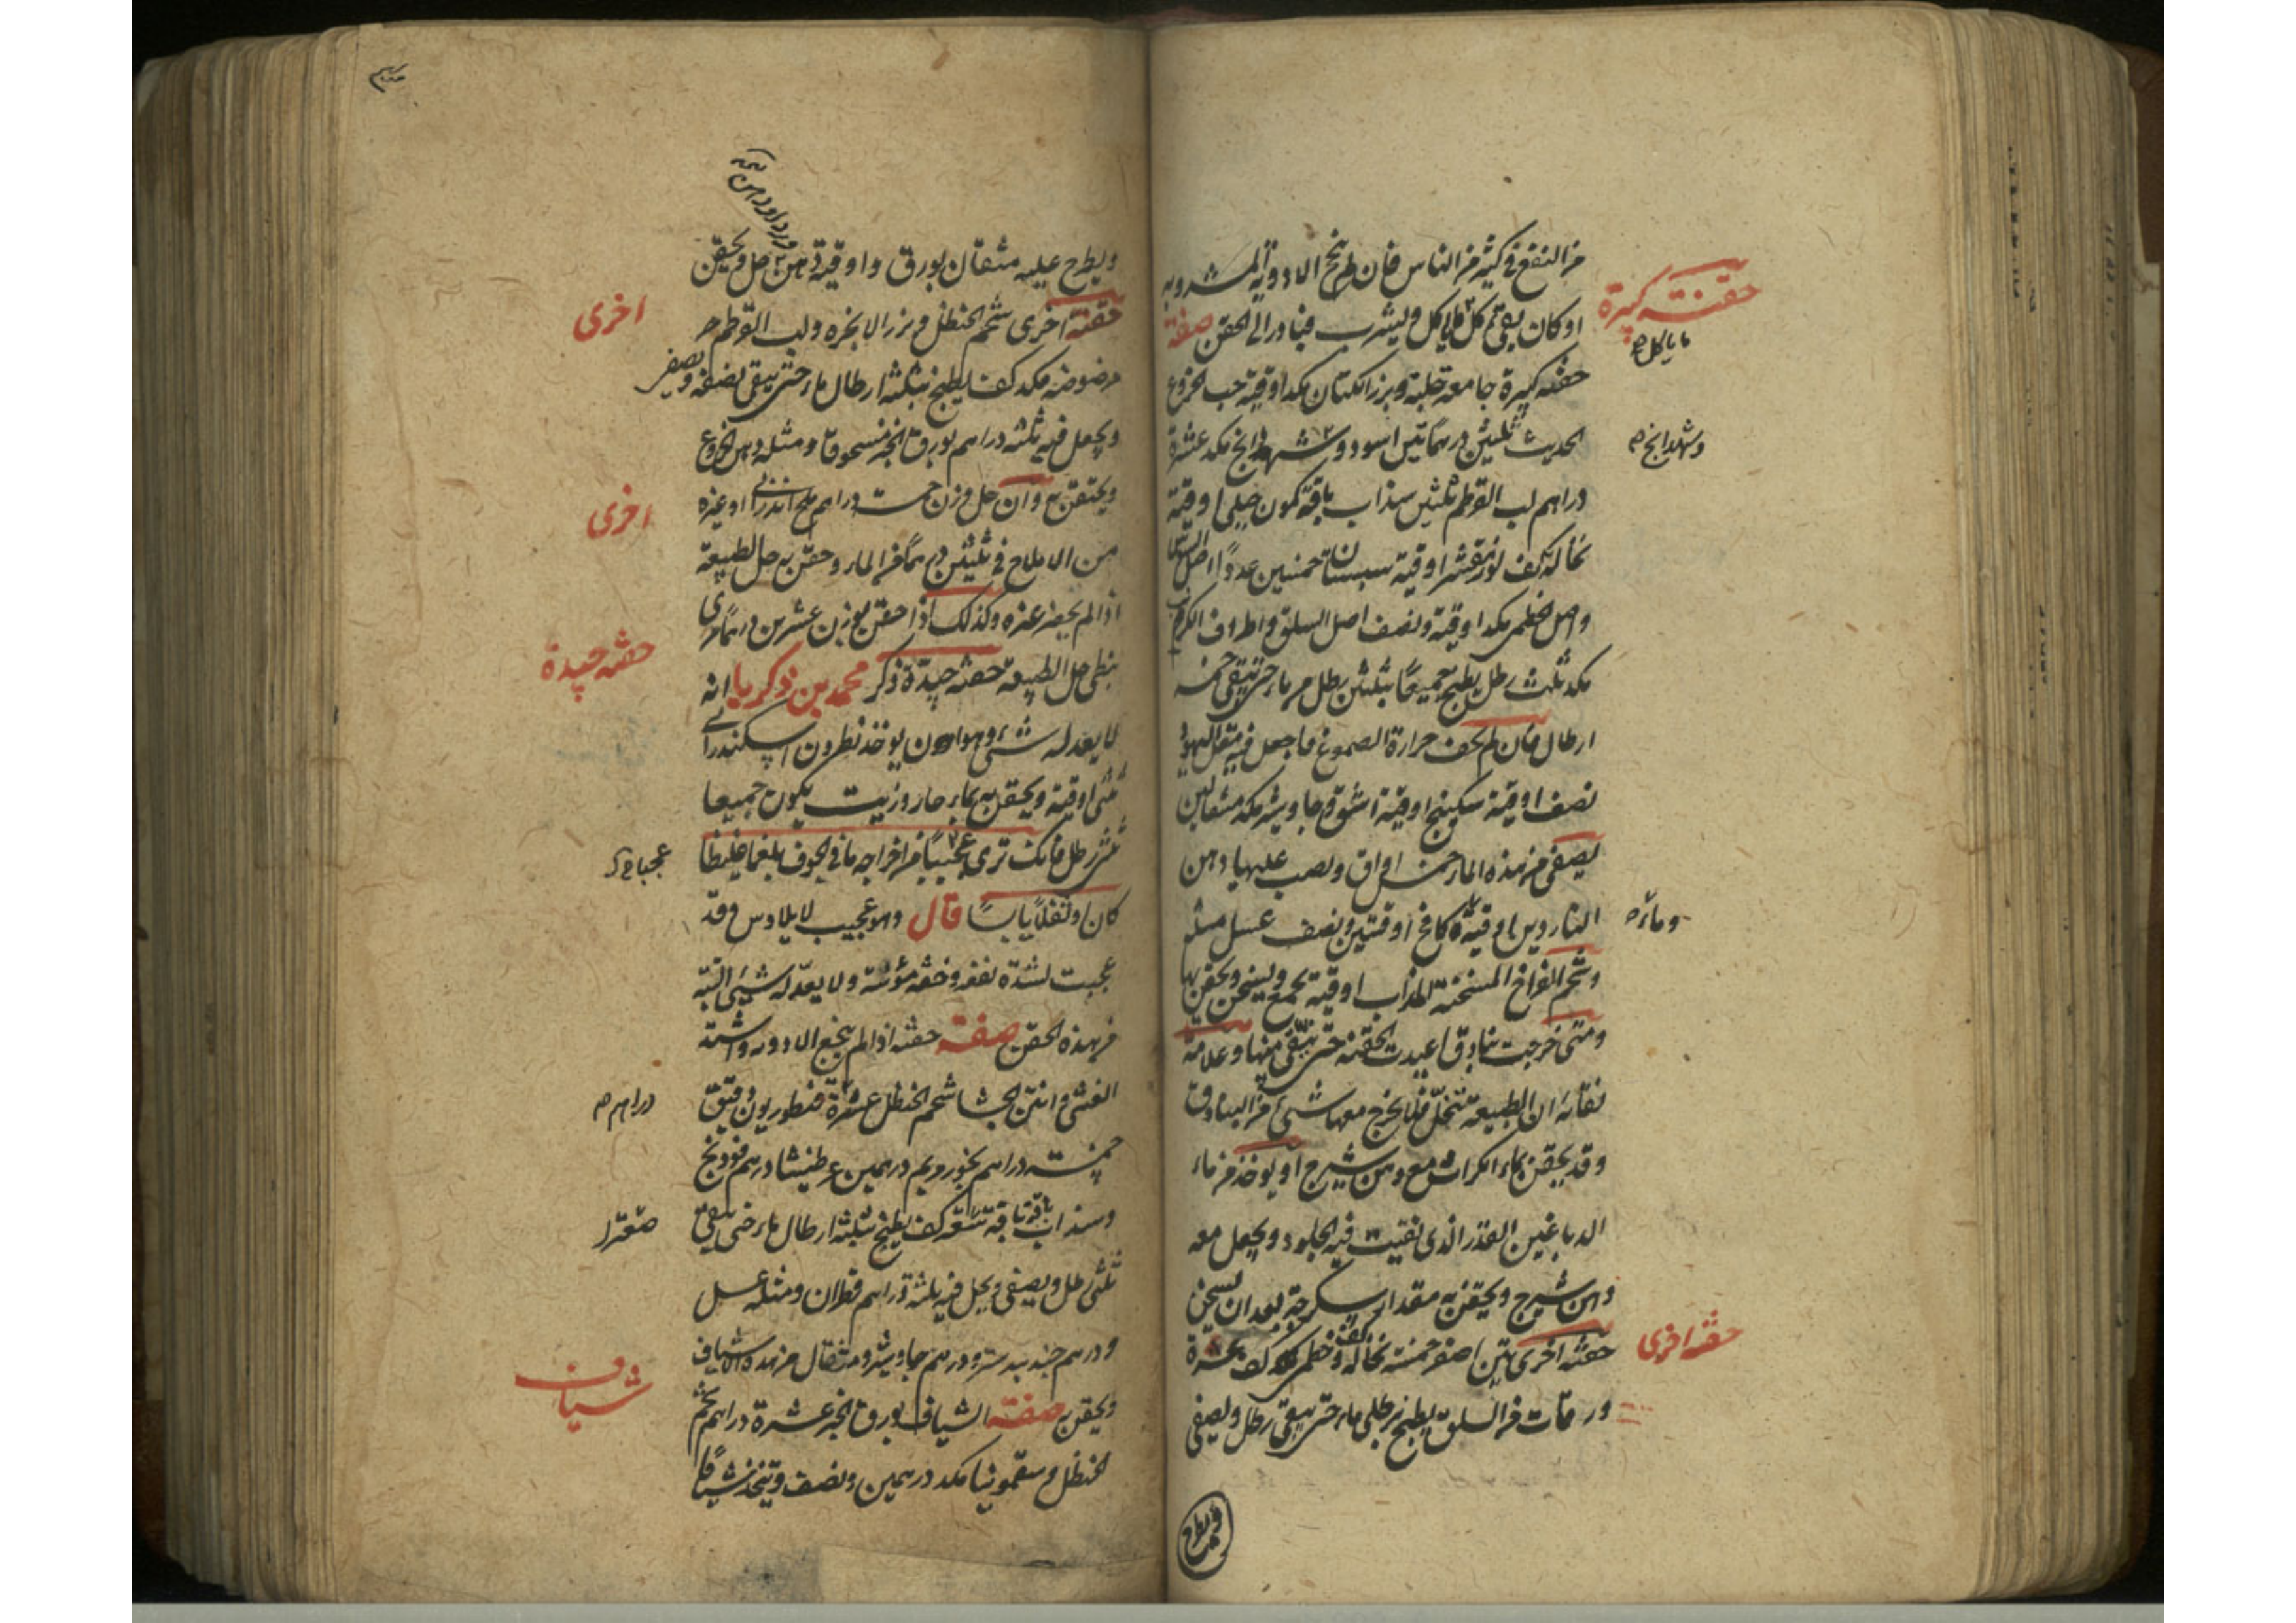 من النفع في كثير من الناس فان لم ينجح الادوية المشروبه
حقنة كبيرة
او كان يقئ كل ما ياكل ويشرب فبادر الى الحقن صفة
ما ياكل صح
حقنه كبيرة جامعه حلبة وبزر الكتان مكد اوقية حب الخروع
الحديث ثلثين درهما تين اسود و شهدانج مكد عشرة
وشهدانج صح
دراهم لب القرطم ثلثين سذاب باقة كمون جبلي اوقية
نخالة كف لوز مقشر اوقية سبستان خمسين عددا اصل السوس
واصل الخطمي مكد اوقية ونصف اصل السلق واطراف الكرنب
مكد ثلث رطل يطبخ جميعا بثلثين رطل من ماء حتى يبقى خمسة
ارطال فان لم يخف حرارة الصموغ فاجعل فيه مقل اليهود
نصف اوقية سكبينج اوقية اشق وجاوشير مكد مثقالين
يصفى من هذه الماء خمس اواق ويصب عليها دهن
الناردين اوقية كافخ اوقتين ونصف عسل مثله
وماءه
وشحم الفراخ المسخنة المذاب اوقية يجمع ويسخن ويحقن بها
ومتى خرجت بنادق اعيدت الحقنه حتى ينقى منها وعلامة
نقائه ان الطبيعه تنحل فلا يخرج معها شئ من البنادق
وقد يحقن بماء الكراث مع دهن شيرج او يوخذ من ماء
الدباغين القذر الذي نقيت فيه الجلود ويجعل معه
دهن شيرج ويحقن به مقدار سكرجة بعد ان يسخن
حقنه اخرى تين اصفر خمسة نخاله كف وخطمي مكد كف عشرة
حقنه اخرى
ورقات من السلق يطبخ برطلي ماء حتى يبقى رطل ويصفى
ويطرح
ويطرح عليه مثقال بورق واوقية دهن حل ويحقن
حقنة اخرى شحم الحنظل و بزر الانجره ولب القرطم
اخرى
مرضوضه مكد كف يطبخ بثلثة ارطال ماء حتى يبقى نصفه ويصفى
ويجعل فيه ثلثه دراهم بورق الخبز مسحوقا ومثله دهن الخروع
ويحتقن به وان حل وزن خمسة دراهم ملح اندراني او غيره
اخرى
من الاملاح في ثلثين درهما من الماء وحقن به حل الطبيعة
اذا لم يحضر غيره وكذلك اذا حقن بوزن عشرين درهما مري
نبطي حل الطبيعة حقنه جيدة ذكر محمد بن زكريا انه
حقنه جيدة
لا يعدله شئ وهو ان يوخذ نطرون اسكندراني
ثلثى اوقية ويحقن به بماء حار وزيت يكون جميعا
ثلثى رطل فانك ترى عجيبا من اخراجه ما في الجوف بلغما غليظا
كان او ثفلا يابسا قال وهو عجيب لايلاوس وقد
عجبت لشدة نفعه وخفة مؤنته ولا يعدله شئ البتة
من هذه الحقن صفته حقنه اذا لم ينجع الادويه واشتد
الغشي وانتن الجشا شحم الحنظل عشرة قنطوريون دقيق
دراهم صح
خمسة دراهم بخور مريم درهمين عرطنيثا درهم فودنج
وسذاب باقة باقة كف يطبخ بثلثة ارطال ماء حتى يبقى
ثلثى رطل ويصفى ويحل فيه ثلثة دراهم قطران ومثله عسل
ودرهم جندبيدستر ودرهم جاوشير ومثقال من هذه الاشياف
ويحقن به صفته الشياف بورق الخبز عشرة دراهم شحم
شياف
الحنظل وسقمونيا مكد درهمين ونصف ويتخذ شيافا